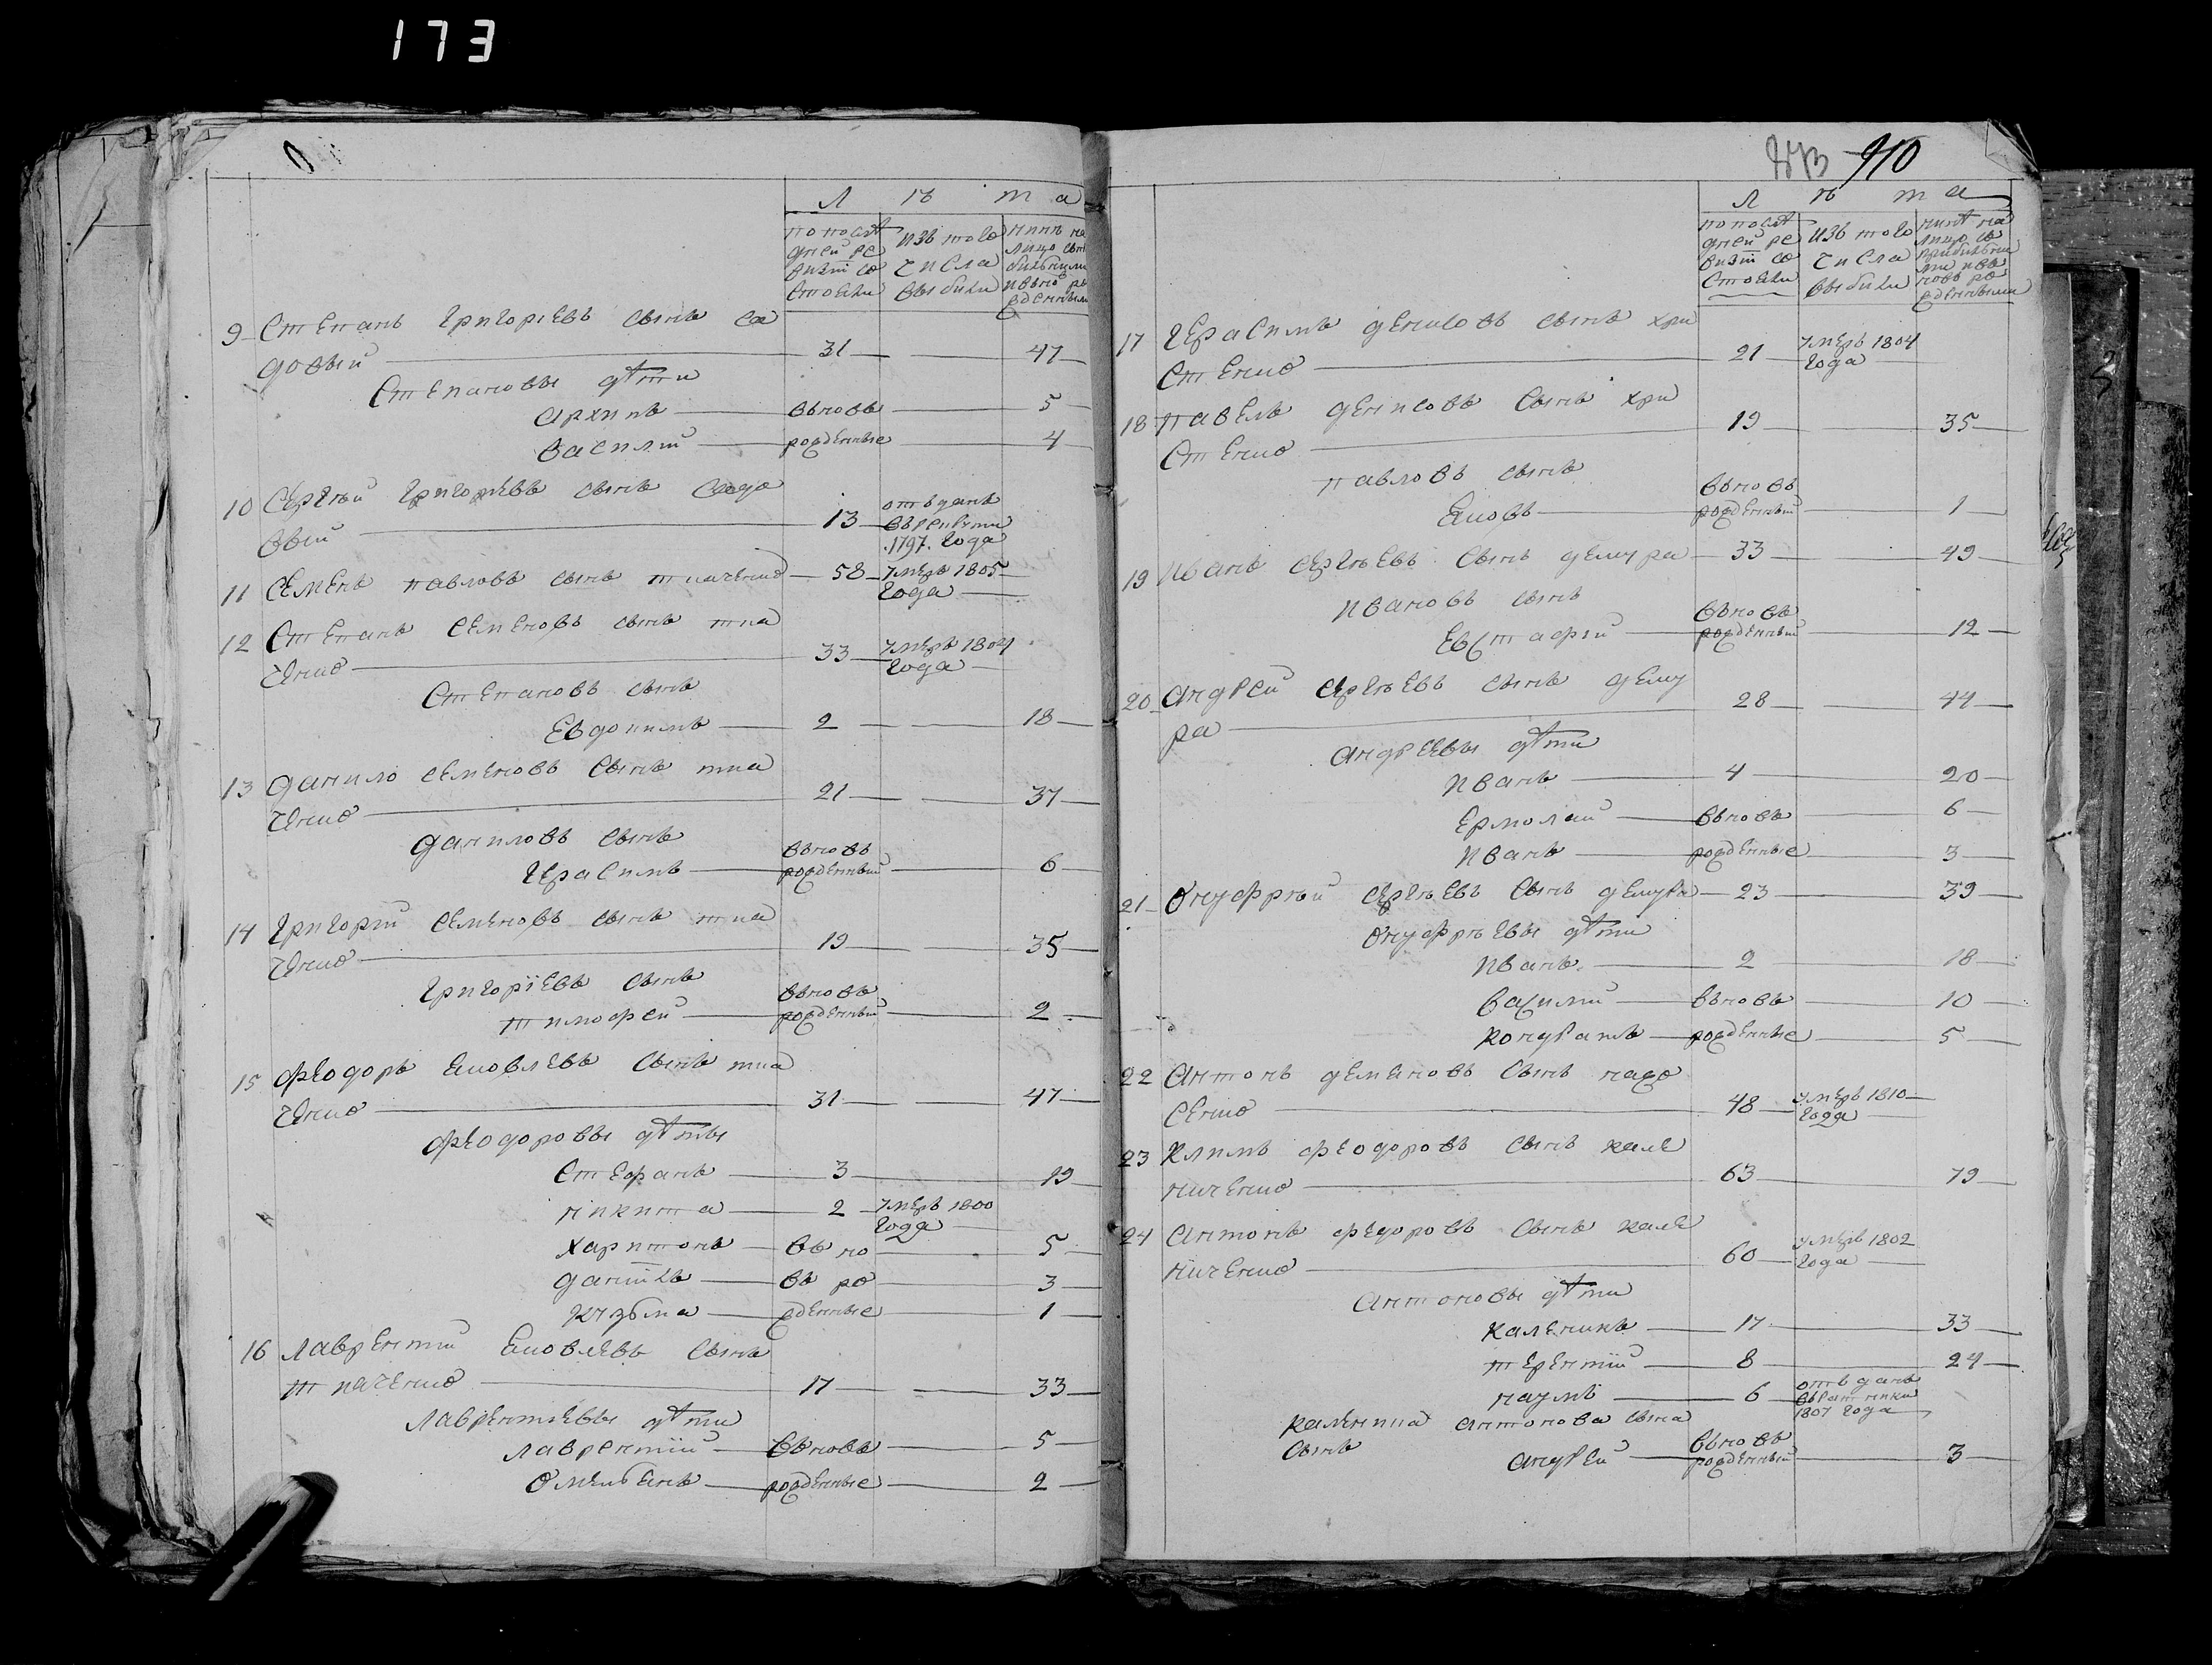 173
Л ѣ та
по послѣ
дней ре
визіи со
стояли
изъ того
числа
выбыли
9 Степанъ Григоріевъ сынъ Са
довый 31 47
Степановы дѣти
Архипъ вновь 5
Василій рожденные 4
10 Сергѣй Григоріевъ сынъ Садо
вый 13 отъданъ
въ рекруты
1797 года
11 Семенъ Павловъ сынъ Ткаченко 58 умеръ 1805
года
12 Степанъ Семеновъ сынъ Тка
ченко 33 умеръ 1804
года
Степановъ сынъ
Евдокимъ 2 18
13 Данило Семеновъ сынъ Тка
ченко 21 37
Даниловъ сынъ
Герасимъ вновь
рожденный 6
14 Григорій Семеновъ сынъ Тка
ченко 19 35
Григоріевъ сынъ
Тимофей вновь
рожденный 2
15 Феодоръ Яковлевъ сынъ Тка
ченко 31 47
Феодоровы дѣты
Стефанъ 3 19
Никита 2 умеръ 1800
года
Харитонъ вьно 5
Даніилъ въ ро 3
Кузьма жденные 1
16 Лаврентій Яковлевъ сынъ
Ткаченко 17 33
Лаврентіевы дѣти
Лаврентій вновь 5
Омельянъ рожденные 2
910
Л ѣ та
по послѣ
дней ре
визіи со
стояли
изъ того
числа
выбыли
нынѣ на
лицо со
прибылы
ми и вь
новь ро
жденными
17 Герасимъ Денисовъ сынъ Хри
стенко 21 умеръ 1804
года
18 Павелъ Денисовъ сынъ Хри
стенко 19 35
Павловъ сынъ
Яковъ вьновь
рожденный 1
19 Иванъ Сергѣевъ сынъ Демура 33 49
Ивановъ сынъ
Евстафій вьновь
рожденный 12
20 Андрей Сергѣевъ сынъ Дему
ра 28 44
Андреевы дѣти
Иванъ 4 20
Ермолай вьновь 6
Иванъ рожденные 3
21 Онуфрѣй Сергѣевъ сынъ Демура 23 39
Онуфрѣевы дѣти
Иванъ 2 18
Василій вьновь 10
Кондратъ рожденные 5
22 Антонъ Демяновъ сынъ
48 умеръ 1810
года
23 Климъ Феодоровъ сынъ Кале
ниченко 63 79
24 Антонъ Федоровъ сынъ Кале
ниченко 60 умеръ 1802
года
Антоновы дѣти
Каленикъ 17 33
Терентій 8 24
Наумъ 6 отъданъ
въ ратники
1807 года
Каленика Антонова сына
сынъ Андрей вьновь
рожденный 3